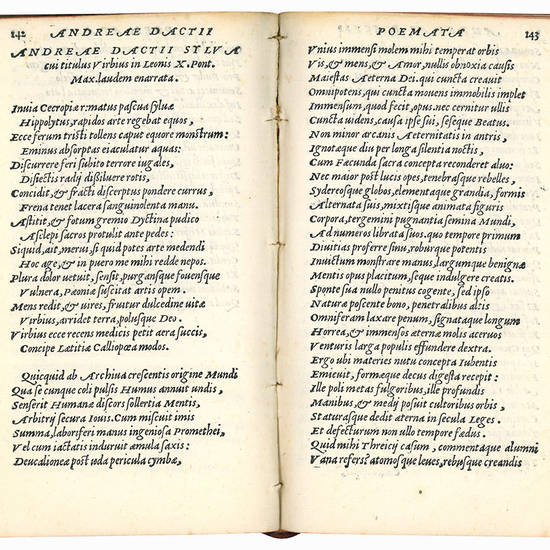 142 ANDREAE DACTII
ANDREAE DACTII SYLVA
cui titulus Virbius in Leonis X. Pont.
Max. laudem enarrata.
Inuia Cecropiæ rimatus pascua syluæ
Hippolytus, rapidos arte regebat equos,
Ecce ferum tristi tollens caput equore monstrum:
Eminus absorptas eiaculatur aquas:
Discurrere feri subito terrore iugales,
Disiectis radij dissiluere rotis,
Concidit, & fracti discerptus pondere currus,
Frena tenet lacera sanguinolenta manu.
Astitit, & fotum gremio Dyctinna pudico
Asclepi sacros protulit ante pedes:
Siquid, ait, merui, si quid potes arte medendi
Hoc age, & in puero me mihi redde nepos.
Plura dolor uetuit, sensit, purgansque fouensque
Vulnera, Pæoniæ suscitat artis opem.
Mens redit, & uires, fruitur dulcedine uitæ
Virbius, arridet terra, polusque Deo.
Virbius ecce recens medicis petit aera succis,
Concipe Lætitia Calliopæa modos.
Quicquid ab Archiua crescentis origine Mundi
Qua se cunque coli pulsis Humus annuit undis,
Senserit Humanæ discors sollertia Mentis,
Arbitrij secura Iouis. Cum miscuit imis
Summa, laboriferi manus ingeniosa Promethei,
Vel cum iactatis induruit amula saxis:
Deucalioneæ post uda pericula cymbæ,
POEMATA 143
Vnius immensi molem mihi temperat orbis
Vis, & mens, & Amor, nullis obnoxia causis
Maiestas Aeterna Dei. qui cuncta creauit
Omnipotens, qui cuncta mouens immobilis implet
Immensum, quod fecit, opus: nec cernitur ullis
Cuncta uidens, causa ipse sui, seseque Beatus.
Non minor arcanis Aeternitatis in antris,
Ignotaque diu per longa silentia noctis,
Cum Fæcunda sacra concepta reconderet aluo:
Nec maior post lucis opes, tenebrasque rebelles,
Sydereosque globos, elementaque grandia, formis
Alternata suis, mixtisque animata figuris
Corpora, tergemini pugnantia semina Mundi,
Ad numeros librata suos. quo tempore primum
Diuitias proferre sinu, roburque potentis
Inuictum monstrare manus, largumque benignæ
Mentis opus placitum, seque indulgere creatis.
Sponte sua nullo penitus cogente, sed ipso
Naturæ poscente bono, penetralibus altis
Omniferam laxare penum, signataque longum
Horrea, & immensos æternæ molis aceruos
Venturis larga populis effundere dextra.
Ergo ubi materies nutu concepta Iubentis
Emicuit, formæque decus digesta recepit:
Ille poli metas fulgoribus, ille profundi
Manibus, & medij posuit cultoribus orbis,
Staturasque dedit aterna in secula Leges.
Et defecturum non ullo tempore fædus.
Quid mihi Threicij casum, commentaque alumni
Vana refers? atomosque leues, rebusque creandis